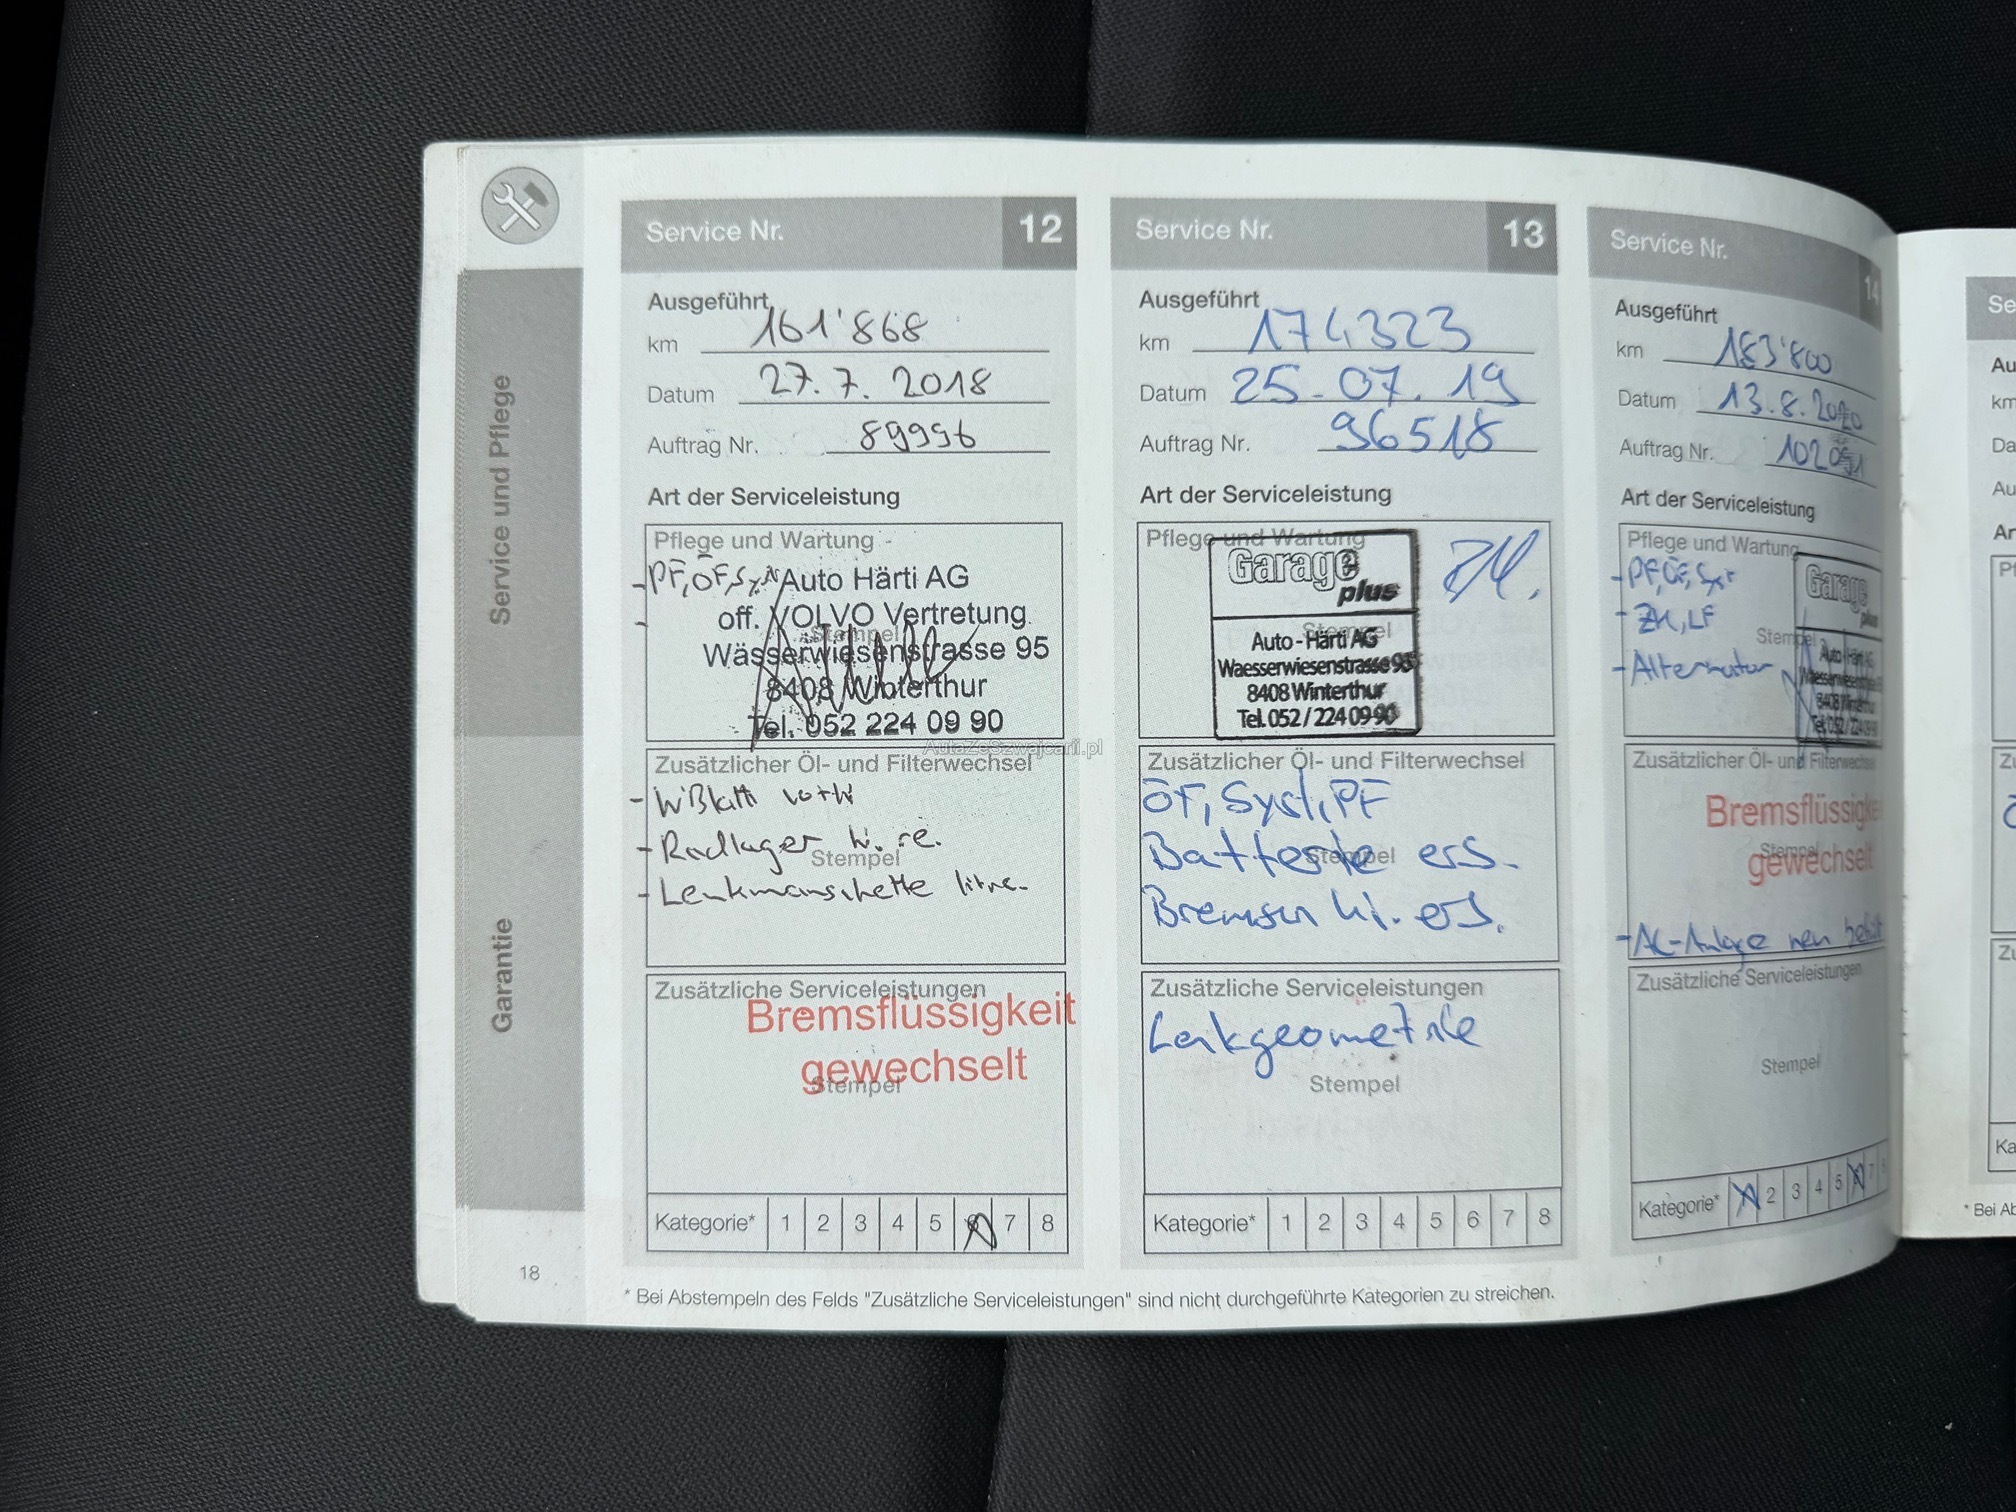 Service und Pflege
Garantie
18
Service Nr. 12
Ausgeführt
km 161'868
Datum 27.7.2018
Auftrag Nr. 89996
Art der Serviceleistung
Pflege und Wartung
- PF, ÖF, Syst
Auto Härti AG
off. VOLVO Vertretung
Stempel
Wässerwiesenstrasse 95
8408 Winterthur
Tel. 052 224 09 90
Zusätzlicher Öl- und Filterwechsel
- W'Blatt
- Radlager hi. re.
Stempel
- Lenkmanschette
Zusätzliche Serviceleistungen
Bremsflüssigkeit
gewechselt
Stempel
Kategorie* 1 2 3 4 5 6 7 8
Service Nr. 13
Ausgeführt
km 174323
Datum 25.07.19
Auftrag Nr. 96518
Art der Serviceleistung
Pflege und Wartung
Garage
plus
Stempel
Auto-Härti AG
Waesserwiesenstrasse 95
8408 Winterthur
Tel. 052 / 224 09 90
Zusätzlicher Öl- und Filterwechsel
ÖF, Syst, PF
Batterie ers.
Stempel
Bremsen hi. ers.
Zusätzliche Serviceleistungen
Lenkgeometrie
Stempel
Kategorie* 1 2 3 4 5 6 7 8
Service Nr. 14
Ausgeführt
km 183'800
Datum 13.8.2020
Auftrag Nr.
Art der Serviceleistung
Pflege und Wartung
- PF, ÖF, Syst
- ZK, LF
Stempel
- Alternator
Garage
plus
Auto-Härti AG
Waesserwiesenstrasse
8408 Winterthur
Tel. 052 / 224 09 90
Zusätzlicher Öl- und Filterwechsel
Bremsflüssigkeit
Stempel
gewechselt
- AC-Anlage neu
Zusätzliche Serviceleistungen
Stempel
Kategorie* 2 3 4 5 7 8
* Bei Abstempeln des Felds "Zusätzliche Serviceleistungen" sind nicht durchgeführte Kategorien zu streichen.
AutaZeSzwajcarii.pl
Se
Au
km
Da
Au
Ar
Pf
Zu
Zu
Ka
* Bei Ab